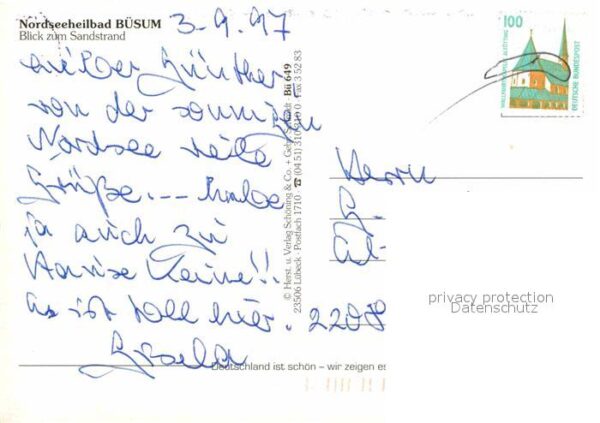 Nordseeheilbad BÜSUM
Blick zum Sandstrand
3.9.97
Lieber Günther
von der sonnigen
Nordsee viele
Grüße... habe
ja auch zu
Hause keine!!
es ist toll hier.
Gisela
© Herst. u. Verlag Schöning & Co. + Gebr. Schmidt · Bü 649
23506 Lübeck · Postfach 1710 · ☎ (04 51) 310 310 · Fax 3 52 83
Deutschland ist schön – wir zeigen es
100
WALLFAHRTSKAPELLE ALTÖTTING
DEUTSCHE BUNDESPOST
Herrn
G.
2208
privacy protection
Datenschutz